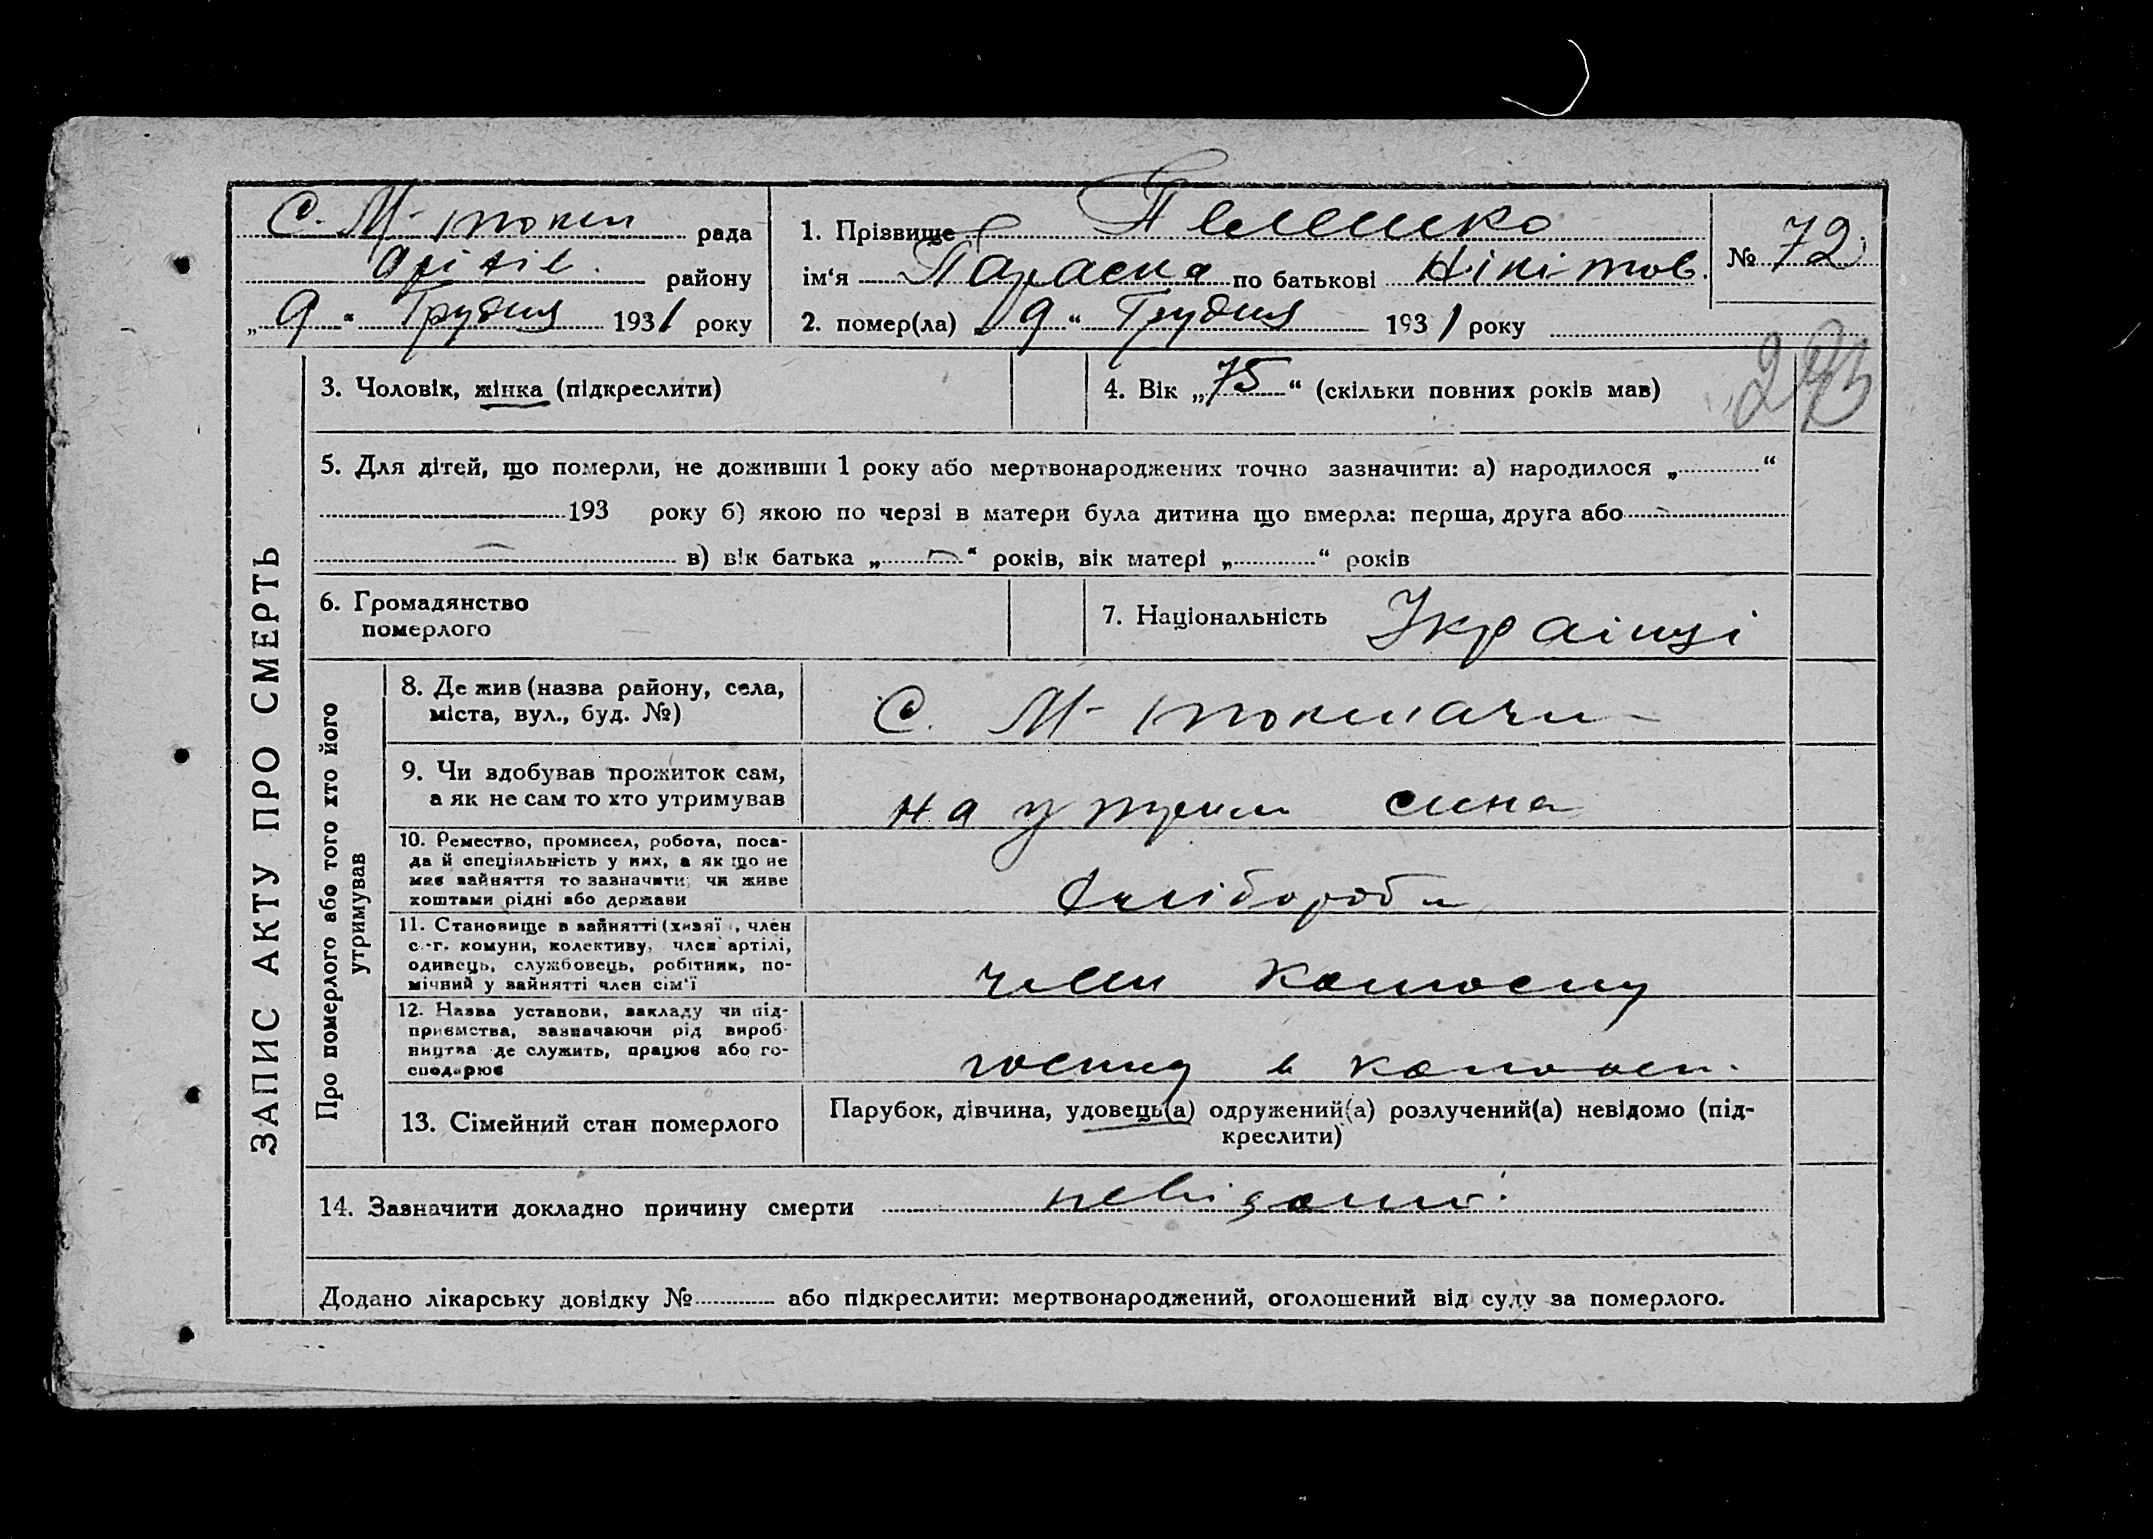 С. М-токм рада
Оріхів. району
„ 9 “ Грудня 1931 року
1. Прізвище Телешко
ім‘я Параска по батькові Нікітов.
№ 72
2. помер(ла) „ 9 “ Грудня 1931 року
ЗАПИС АКТУ ПРО СМЕРТЬ
3. Чоловік, жінка (підкреслити)
4. Вік „ 75 “ (скільки повних років мав)
5. Для дітей, що померли, не доживши 1 року або мертвонароджених точно зазначити: а) народилося „ “
193 року б) якою по черзі в матери була дитина що вмерла: перша, друга або
в) вік батька „ “ років, вік матері „ “ років
6. Громадянство
померлого
7. Національність Українці
Про померлого або того хто його
утримував
8. Де жив (назва району, села,
міста, вул., буд. №)
С. М-токмачи
9. Чи здобував прожиток сам,
а як не сам то хто утримував
на утрим сина
10. Ремество, промисел, робота, поса-
да й спеціяльність у них, а як що не
має зайняття то зазначити; чи живе
коштами рідні або держави
хлібороб
11. Становище в зайнятті (хазяї, член
с.-г. комуни, колективу, член артілі,
одинець, службовець, робітник, по-
мічний у зайнятті член сім‘ї
член колгоспу
12. Назва установи, закладу чи під-
приємства, зазначаючи рід вироб-
ництва де служить, працює або го-
сподарює
в колгосп.
13. Сімейний стан померлого
Парубок, дівчина, удовець(а) одружений(а) розлучений(а) невідомо (під-
креслити)
14. Зазначити докладно причину смерти невідомо
Додано лікарську довідку № або підкреслити: мертвонароджений, оголошений від суду за померлого.